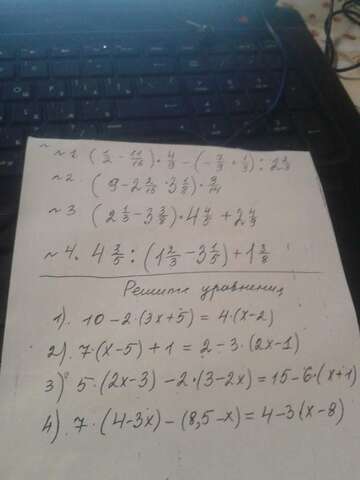 ~ 1. (1/2 - 11/15) · 4/9 - (-7/9 + 1/3) : 2 2/3
~ 2. (9 - 2 2/15 · 3 1/8) · 9/14
~ 3 (2 1/3 - 3 3/8) · 4 4/5 + 2 4/9
~ 4. 4 2/5 : (1 2/3 - 3 1/5) + 1 3/8
Решите уравнения
1). 10 - 2 · (3x + 5) = 4 · (x - 2)
2). 7 · (x - 5) + 1 = 2 - 3 · (2x - 1)
3) 5 · (2x - 3) - 2 · (3 - 2x) = 15 - 6 · (x + 1)
4). 7 · (4 - 3x) - (8,5 - x) = 4 - 3 (x - 8)